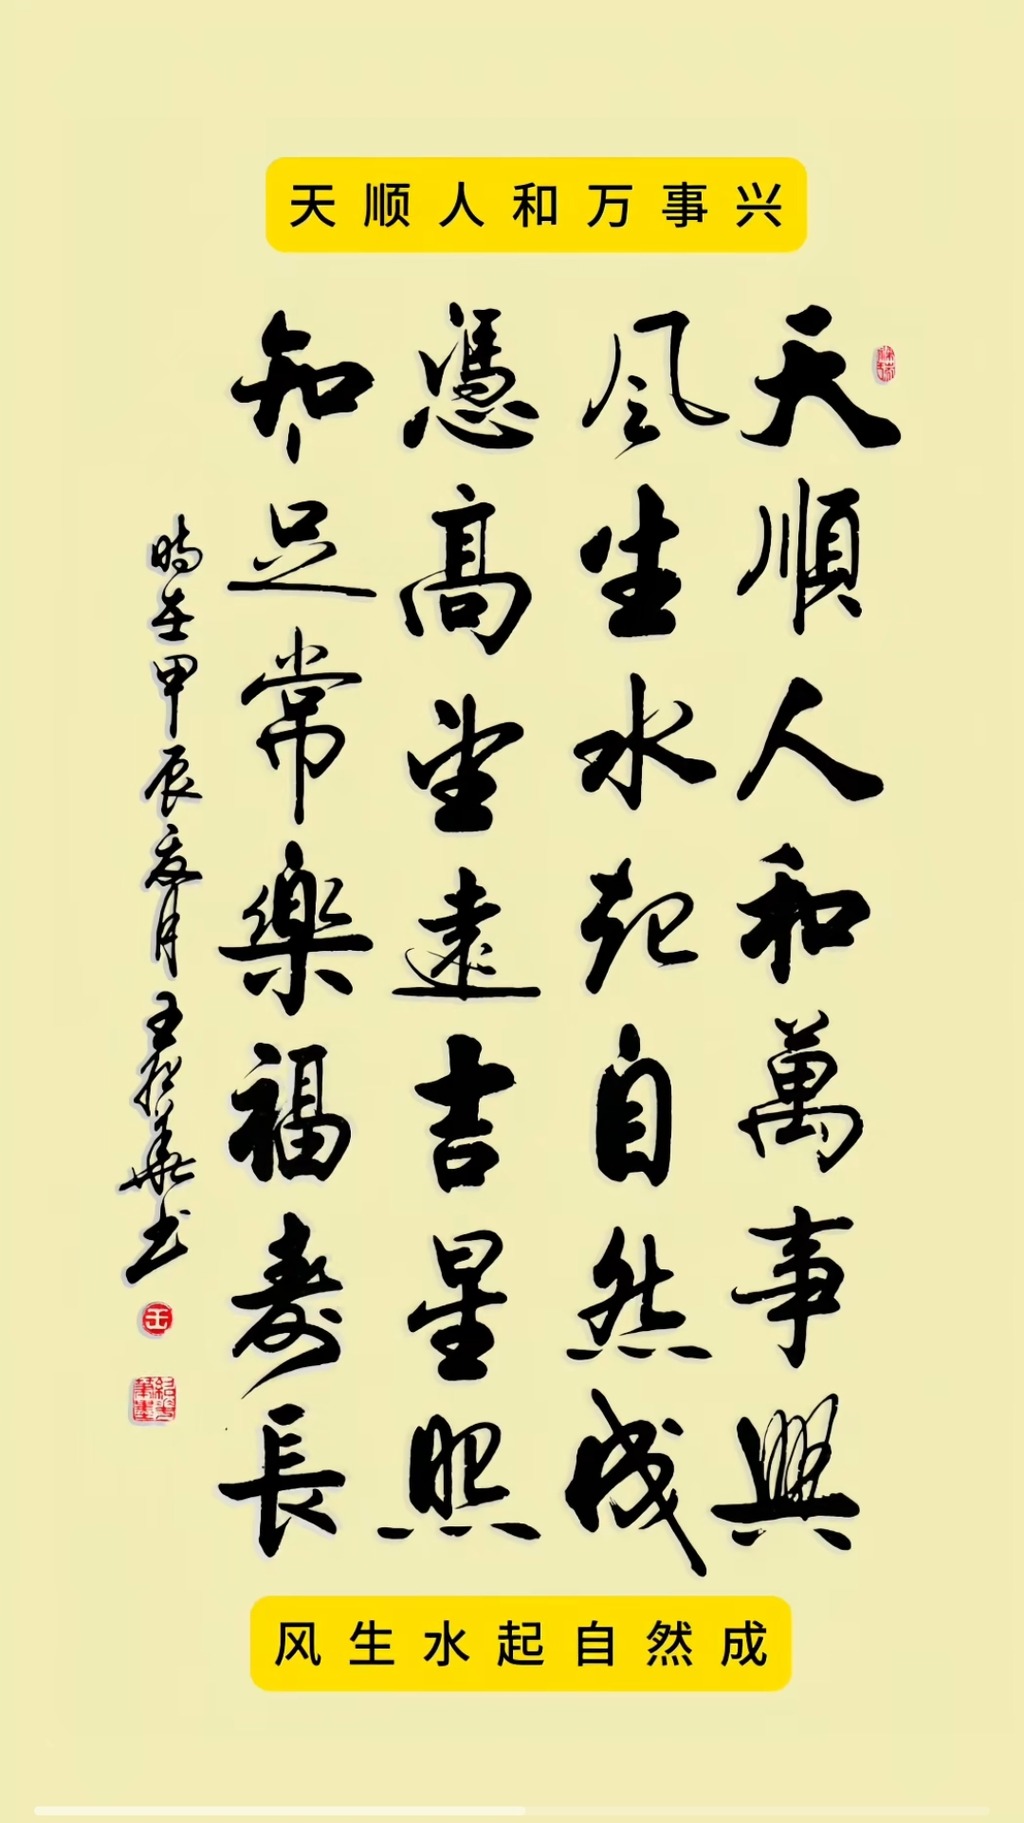 天顺人和万事兴
天順人和萬事興
风生水起自然成
憑高望遠吉星照
知足常樂福壽長
時在甲辰夏月王紹華书
王
风生水起自然成